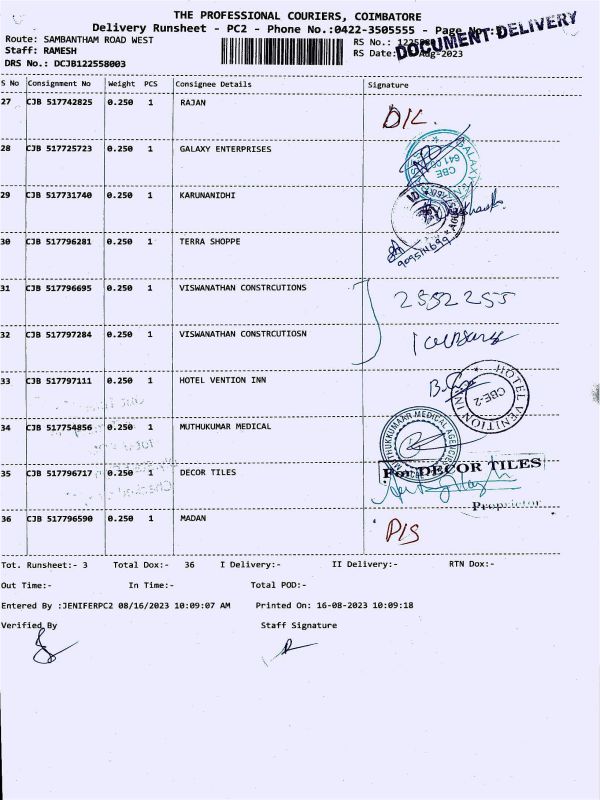 THE PROFESSIONAL COURIERS, COIMBATORE
Delivery Runsheet - PC2 - Phone No.:0422-3505555 - Page No.:
DOCUMENT DELIVERY
Route: SAMBANTHAM ROAD WEST
RS No.:
Staff: RAMESH
RS Date: Aug-2023
DRS No.: DCJB122558003
S No Consignment No Weight PCS Consignee Details Signature
27 CJB 517742825 0.250 1 RAJAN D/L.
28 CJB 517725723 0.250 1 GALAXY ENTERPRISES
GALAXY
CBE
29 CJB 517731740 0.250 1 KARUNANIDHI
30 CJB 517796281 0.250 1 TERRA SHOPPE
31 CJB 517796695 0.250 1 VISWANATHAN CONSTRCUTIONS 2552255
32 CJB 517797284 0.250 1 VISWANATHAN CONSTRCUTIOSN
33 CJB 517797111 0.250 1 HOTEL VENTION INN
HOTEL VENITION INN
CBE-2
34 CJB 517754856 0.250 1 MUTHUKUMAR MEDICAL
MUTHUKKUMAAR MEDICAL AGENCIES
35 CJB 517796717 0.250 1 DECOR TILES
For DECOR TILES
Proprietor
36 CJB 517796590 0.250 1 MADAN P/S
Tot. Runsheet:- 3 Total Dox:- 36 I Delivery:- II Delivery:- RTN Dox:-
Out Time:- In Time:- Total POD:-
Entered By :JENIFERPC2 08/16/2023 10:09:07 AM Printed On: 16-08-2023 10:09:18
Verified By Staff Signature